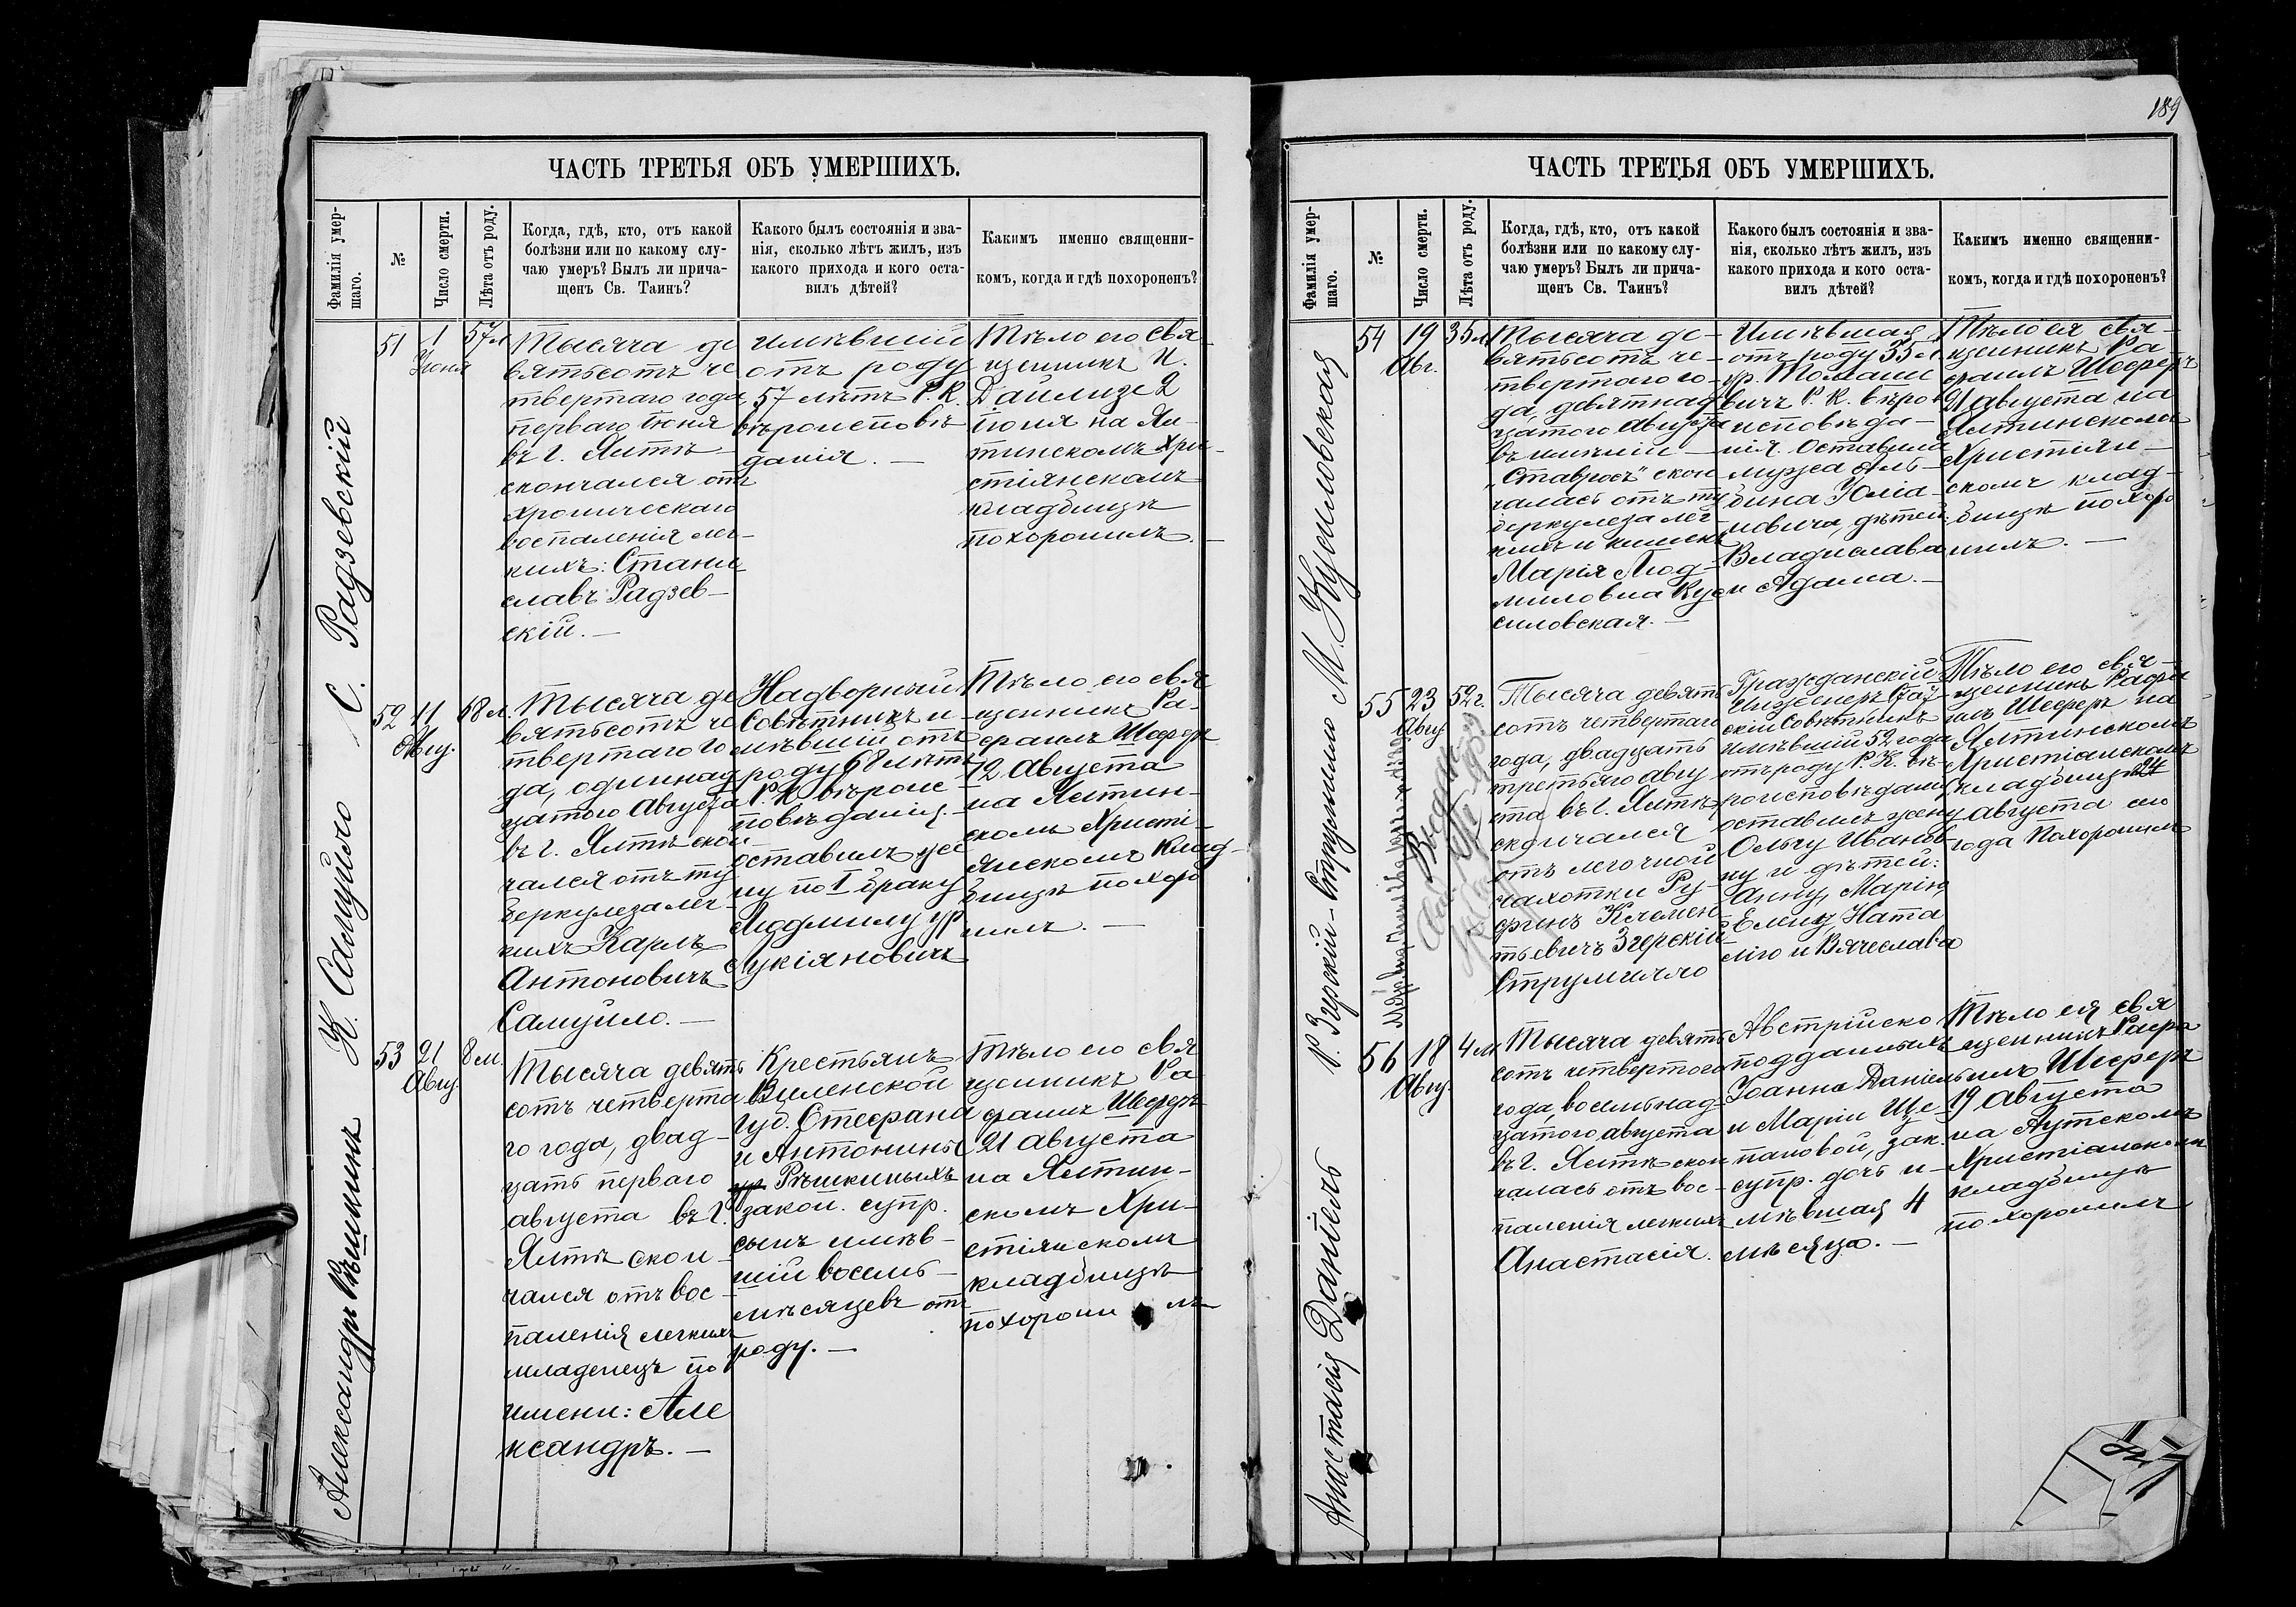 ЧАСТЬ ТРЕТЬЯ ОБЪ УМЕРШИХЪ.
Фамилія умер-
шаго.
№
Число смерти.
Лѣта отъ роду.
Когда, гдѣ, кто, отъ какой
болѣзни или по какому слу-
чаю умеръ? Былъ ли прича-
щенъ Св. Таинъ?
Какого былъ состоянія и зва-
нія, сколько лѣтъ жилъ, изъ
какого прихода и кого оста-
вилъ дѣтей?
Какимъ именно священни-
комъ, когда и гдѣ похороненъ?
С. Радзевскій
51
1
Іюня
57 л
Тысяча де
вятьсотъ че
твертаго года
перваго Іюня
въ г. Ялтѣ
скончался отъ
хроническаго
воспаленія лег-
кихъ: Стани
славъ Радзев-
скій. —
имѣвшій
отъ роду
57 лѣтъ Р. К.
вѣроисповѣ
данія. —
Тѣло его свя
щенникъ И.
Дайлизе 2
іюня на Ял-
тинскомъ Хри-
стіянскомъ
кладбищѣ
похоронилъ. —
К. Самуйло
52
11
Авгу.
68 л.
Тысяча де
вятьсотъ че
твертаго го
да, одиннад
цатого Августа
въ г. Ялтѣ скон
чался отъ ту
беркулеза лег-
кихъ Карлъ
Антоновичъ
Самуйло. —
Надворный
Совѣтникъ и-
мѣвшій отъ
роду 68 лѣтъ
Р. К. вѣроис
повѣданія. —
оставилъ же
ну по I браку
Людмилу ур
Лукіяновичъ
Тѣло его свя
щенникъ Ра-
фаилъ Шефер
12 Августа
на Ялтин-
скомъ Христі-
янскомъ клад-
бищѣ похоро
нилъ. —
Александръ Рѣшкинъ
53
21
Авгу.
8 м.
Тысяча девять
сотъ четверта
го года, двад-
цать перваго
августа въ г.
Ялтѣ скон-
чался отъ вос-
паленія легкихъ
младенецъ по
имени: Але
ксандръ. —
Крестьянъ
Виленской
губ. Стефана
и Антонины
ур Рѣшкиныхъ
закон. супр.
сынъ имѣв-
шій восемь
мѣсяцевъ отъ
роду. —
Тѣло его свя
щенникъ Ра-
фаилъ Шеферъ
21 августа
на Ялтин-
скомъ Хри-
стіянскомъ
кладбищѣ
похоронилъ
189
ЧАСТЬ ТРЕТЬЯ ОБЪ УМЕРШИХЪ.
Фамилія умер-
шаго.
№
Число смерти.
Лѣта отъ роду.
Когда, гдѣ, кто, отъ какой
болѣзни или по какому слу-
чаю умеръ? Былъ ли прича-
щенъ Св. Таинъ?
Какого былъ состоянія и зва-
нія, сколько лѣтъ жилъ, изъ
какого прихода и кого оста-
вилъ дѣтей?
Какимъ именно священни-
комъ, когда и гдѣ похороненъ?
М. Кусиловская
54
19
Авг.
35 л
Тысяча де-
вятьсотъ че-
твертаго го-
да, девятнад
цатого Августа
въ имѣніи
„Ставросъ" скон
чалась отъ ту
беркулеза лег
кихъ и кишекъ
Марія Люд-
миловна Ку
силовская. —
Имѣвшая
отъ роду 35 л
ур. Томаше
вичъ Р. К. вѣро
исповѣда-
нія. Оставила
мужа Аль-
бина Юліа-
новича, дѣтей:
Владислава
и Адама. —
Тѣло ея свя-
щенникъ Ра
фаилъ Шеферъ
21 Августа на
Ялтинскомъ
Христіян-
скомъ клад-
бищѣ похоро
нилъ. —
Р. Згерскій-Струмилло
55
23
Авгу
52 г.
Тысяча девять
сотъ четвертаго
года, двадцать
третьяго авгу
ста въ г. Ялтѣ
скончался
отъ легочной
чахотки Ру-
финъ Клемен
тьевичъ Згерскій
Струмилло
Гражданскій
Инженеръ Стат
скій Совѣтникъ
имѣвшій 52 года
отъ роду Р. К. вѣ-
роисповѣданія,
оставилъ жену
Ольгу Иванов
ну и дѣтей:
Анну, Марію,
Елену, Ната
лію и Вячеслава
Тѣло его свя-
щенникъ Рафа
илъ Шеферъ на
Ялтинскомъ
Христіанскомъ
кладбищѣ 24
Августа сего
года похоронилъ
Анастасія Даніель
56
18
Авгу
4 м.
Тысяча девять
сотъ четвертого
года, восемнад-
цатого августа
въ г. Ялтѣ скон
чалась отъ вос-
паленія легкихъ
Анастасія.
Австрійско
подданныхъ
Іоанна Даніель
и Маріи Ще
пановой, зак.
супр. дочь и-
мѣвшая 4
мѣсяца. —
Тѣло ея свя
щенникъ Рафа
илъ Шеферъ
19 Августа
на Аутскомъ
Христіанскомъ
кладбищѣ
похоронилъ